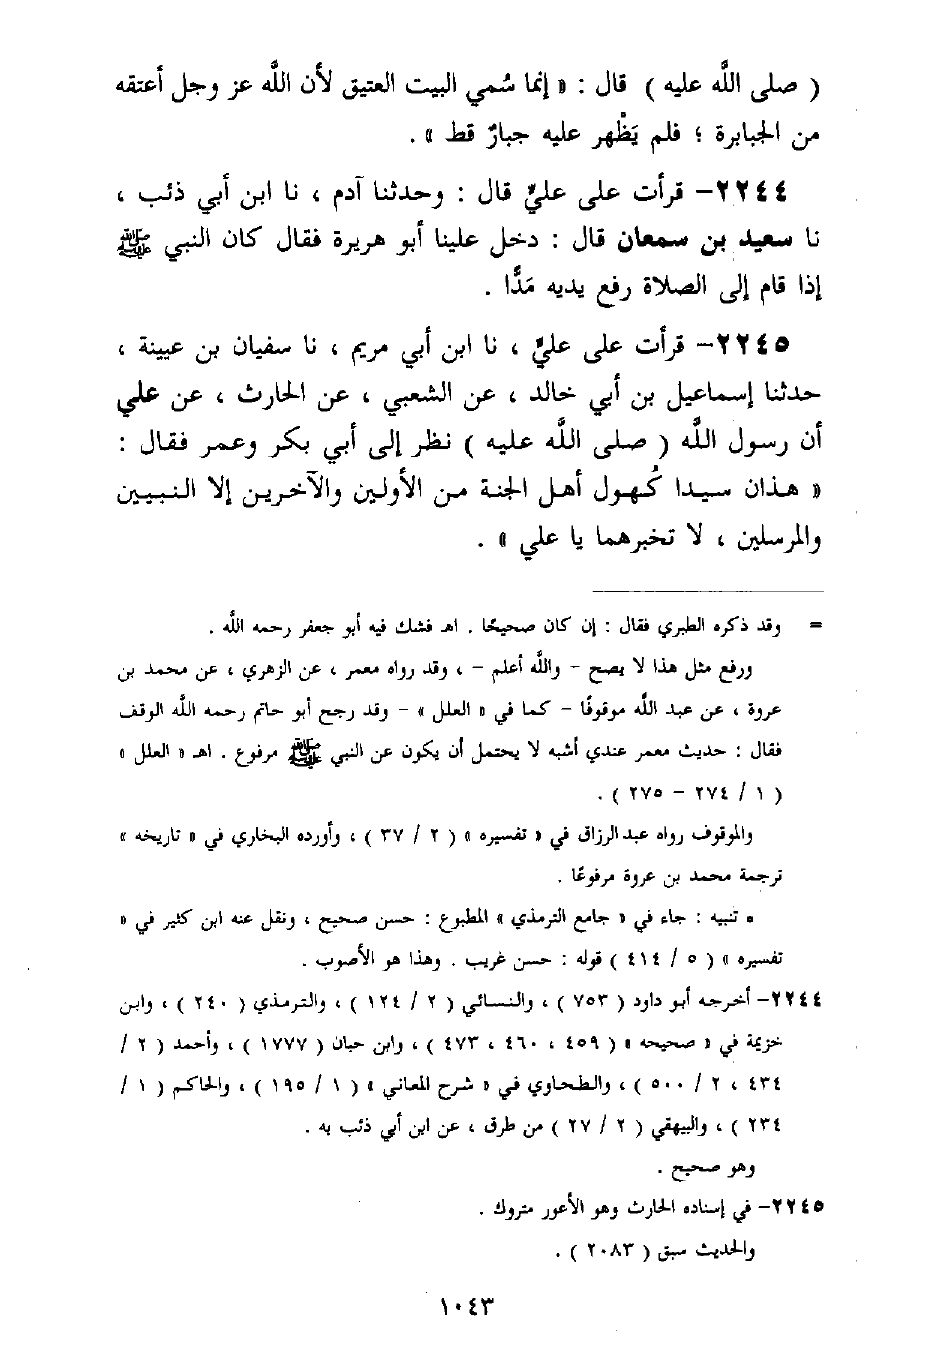 ( صلى اللَّه عليه ) قال : « إنما سُمي البيت العتيق لأن اللَّه عز وجل أعتقه
من الجبابرة ؛ فلم يَظْهر عليه جبارٌ قط » .
٢٢٤٤– قرأت على عليٍّ قال : وحدثنا آدم ، نا ابن أبي ذئب ،
نا سعيد بن سمعان قال : دخل علينا أبو هريرة فقال كان النبي ﷺ
إذا قام إلى الصلاة رفع يديه مَدًّا .
٢٢٤٥– قرأت على عليٍّ ، نا ابن أبي مريم ، نا سفيان بن عيينة ،
حدثنا إسماعيل بن أبي خالد ، عن الشعبي ، عن الحارث ، عن علي
أن رسول اللَّه ( صلى اللَّه عليه ) نظر إلى أبي بكر وعمر فقال :
« هذان سيدا كُهول أهل الجنة من الأولين والآخرين إلا النبيين
والمرسلين ، لا تخبرهما يا علي » .
= وقد ذكره الطبري فقال : إن كان صحيحًا . اهـ فشك فيه أبو جعفر رحمه اللَّه .
ورفع مثل هذا لا يصح – واللَّه أعلم – ، وقد رواه معمر ، عن الزهري ، عن محمد بن
عروة ، عن عبد اللَّه موقوفًا – كما في « العلل » – وقد رجح أبو حاتم رحمه اللَّه الوقف
فقال : حديث معمر عندي أشبه لا يحتمل أن يكون عن النبي ﷺ مرفوع . اهـ « العلل »
( ١ / ٢٧٤ – ٢٧٥ ) .
والموقوف رواه عبد الرزاق في « تفسيره » ( ٢ / ٣٧ ) ، وأورده البخاري في « تاريخه »
ترجمة محمد بن عروة مرفوعًا .
• تنبيه : جاء في « جامع الترمذي » المطبوع : حسن صحيح ، ونقل عنه ابن كثير في «
تفسيره » ( ٥ / ٤١٤ ) قوله : حسن غريب . وهذا هو الأصوب .
٢٢٤٤– أخرجه أبو داود ( ٧٥٣ ) ، والنسائي ( ٢ / ١٢٤ ) ، والترمذي ( ٢٤٠ ) ، وابن
خزيمة في « صحيحه » ( ٤٥٩ ، ٤٦٠ ، ٤٧٣ ) ، وابن حبان ( ١٧٧٧ ) ، وأحمد ( ٢ /
٤٣٤ ، ٢ / ٥٠٠ ) ، والطحاوي في « شرح المعاني » ( ١ / ١٩٥ ) ، والحاكم ( ١ /
٢٣٤ ) ، والبيهقي ( ٢ / ٢٧ ) من طرق ، عن ابن أبي ذئب به .
وهو صحيح .
٢٢٤٥– في إسناده الحارث وهو الأعور متروك .
والحديث سبق ( ٢٠٨٣ ) .
١٠٤٣